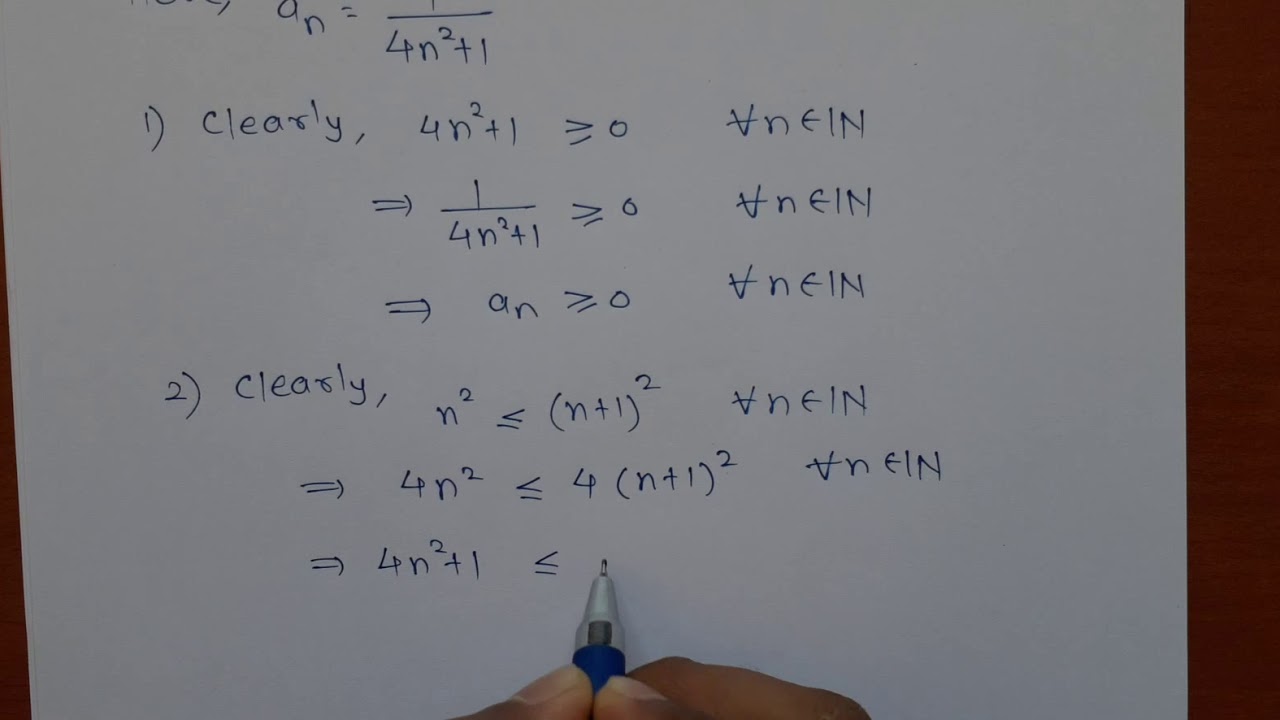 aₙ = 1/(4n²+1)
1) Clearly, 4n²+1 ≥ 0 ∀n∈ℕ
⇒ 1/(4n²+1) ≥ 0 ∀n∈ℕ
⇒ aₙ ≥ 0 ∀n∈ℕ
2) Clearly, n² ≤ (n+1)² ∀n∈ℕ
⇒ 4n² ≤ 4(n+1)² ∀n∈ℕ
⇒ 4n²+1 ≤